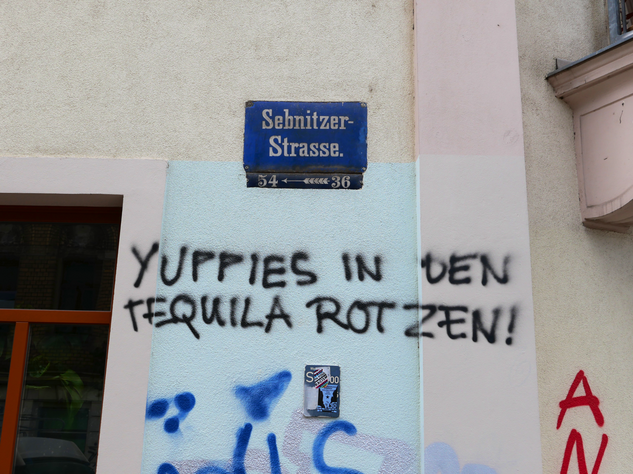 Sebnitzer-
Strasse.
54 36
YUPPIES IN DEN
TEQUILA ROTZEN!
A
N